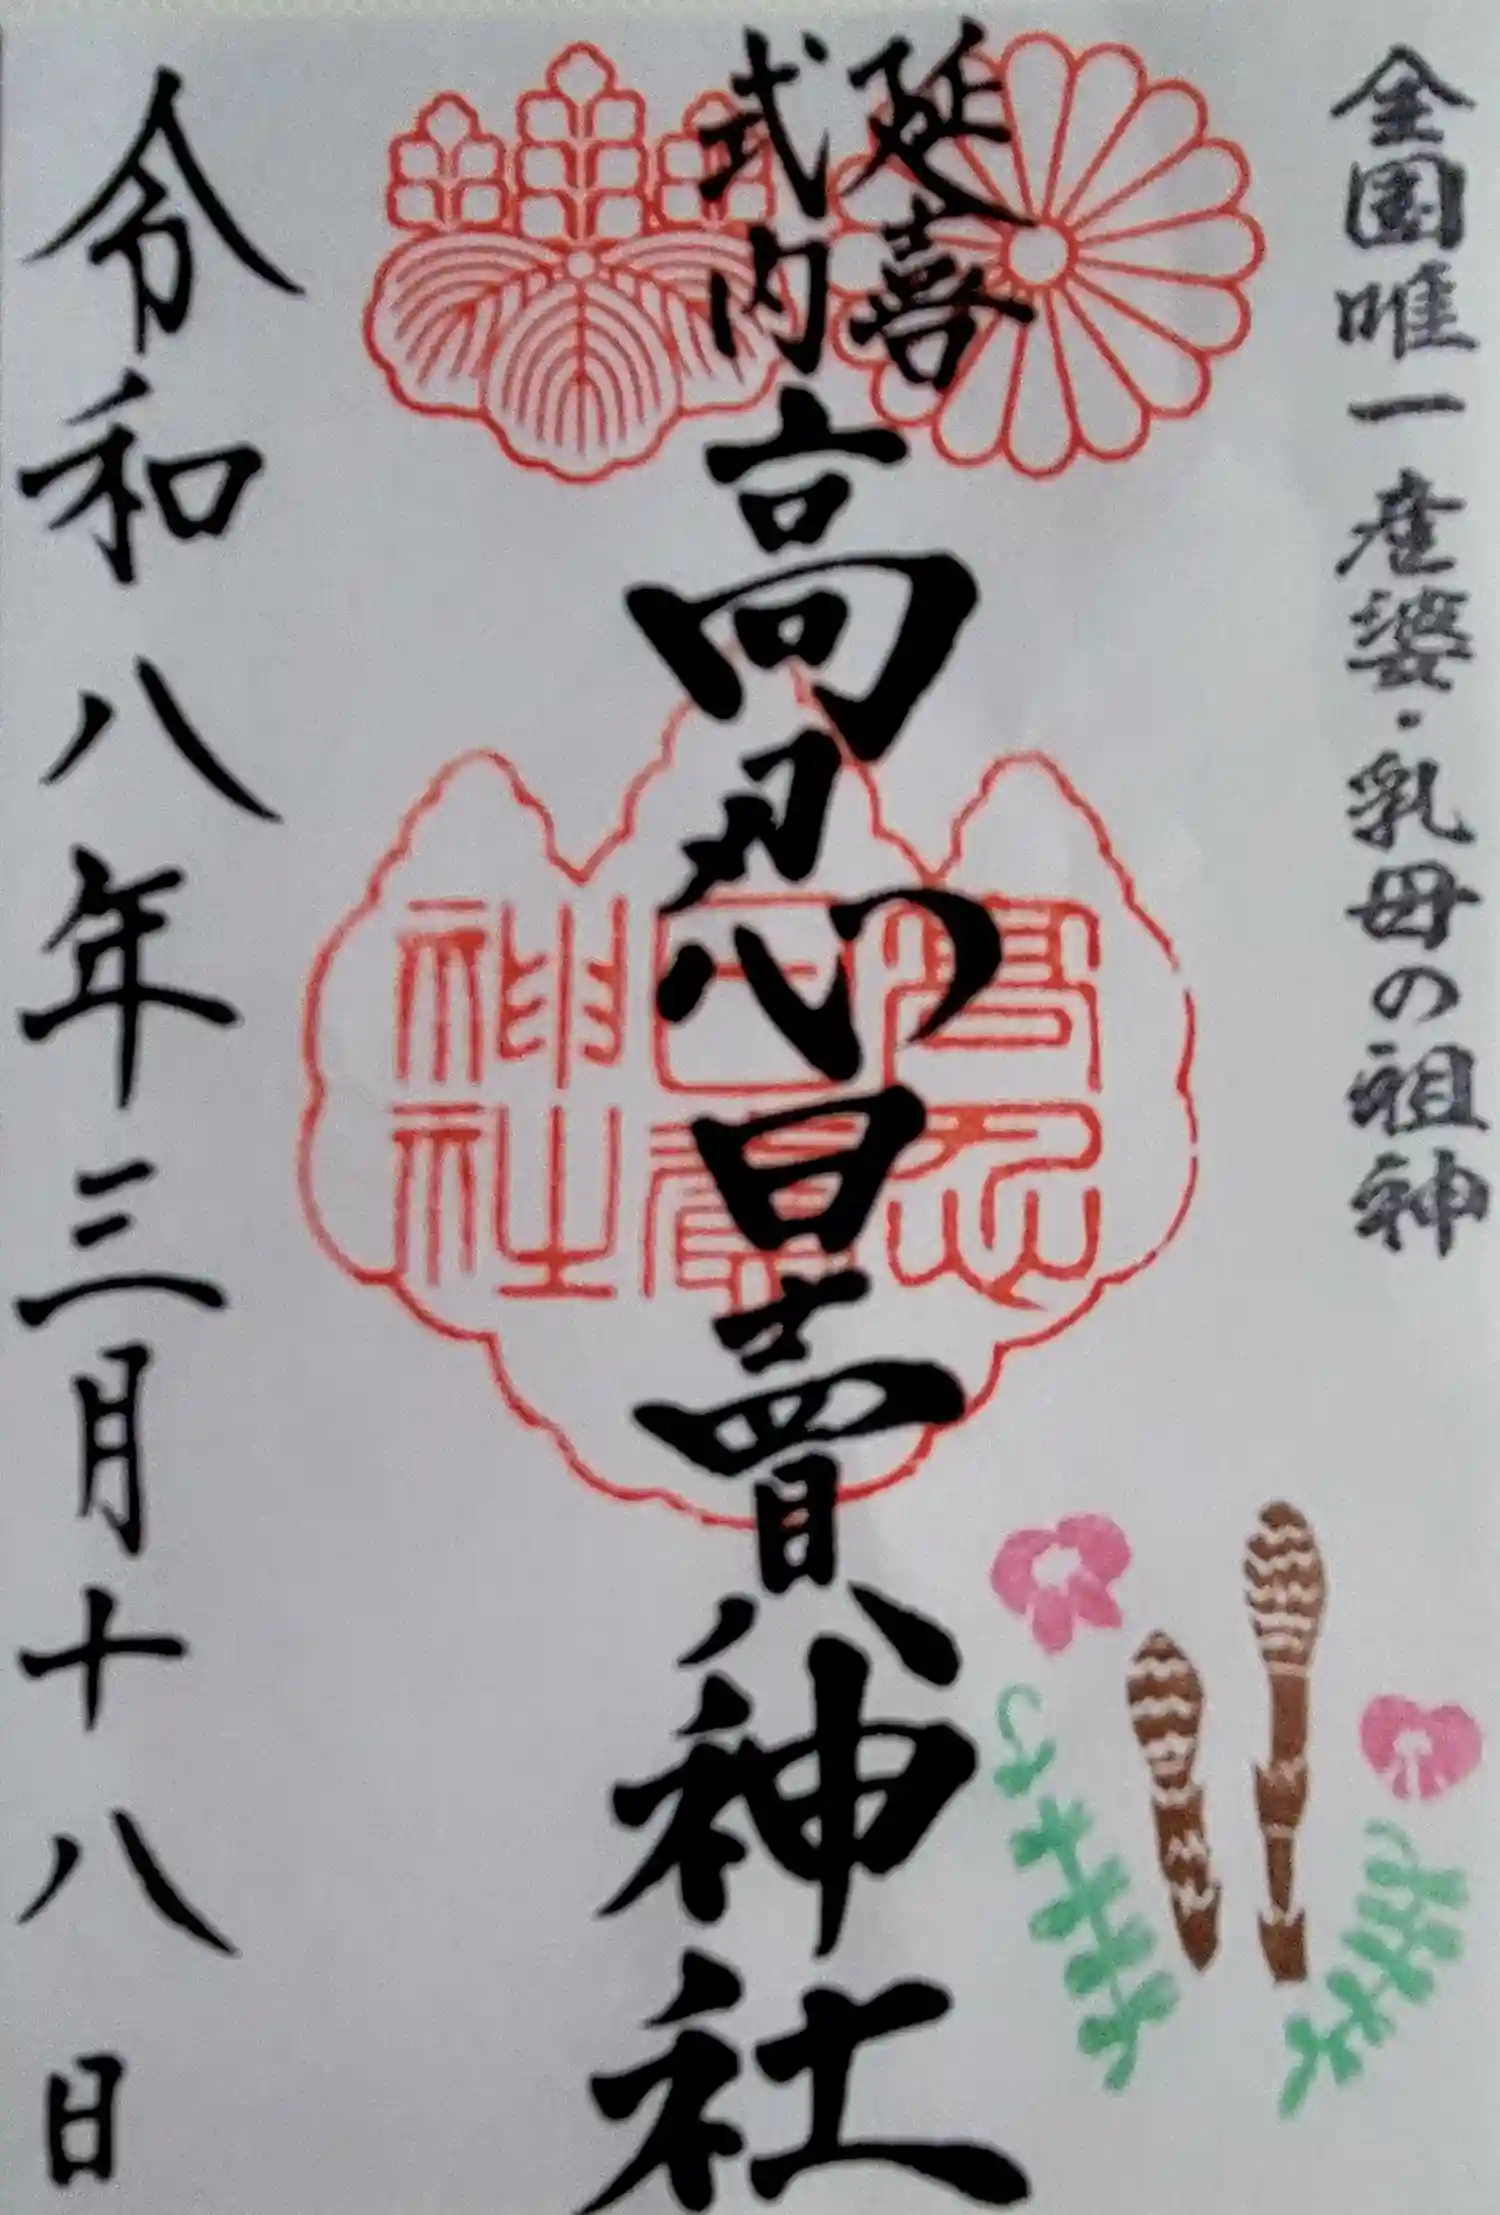 全国唯一産婆・乳母の祖神
延喜
式内
高忍日賣神社
高忍
日賣
神社
令和八年三月十八日